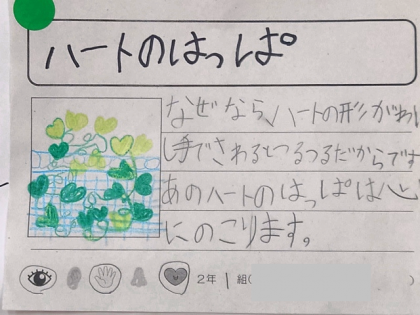 ハートのはっぱ
なぜなら、ハートの形がわ
手でさわるとつるつるだからです
あのハートのはっぱは心
にのこります。
2年 1 組(
)